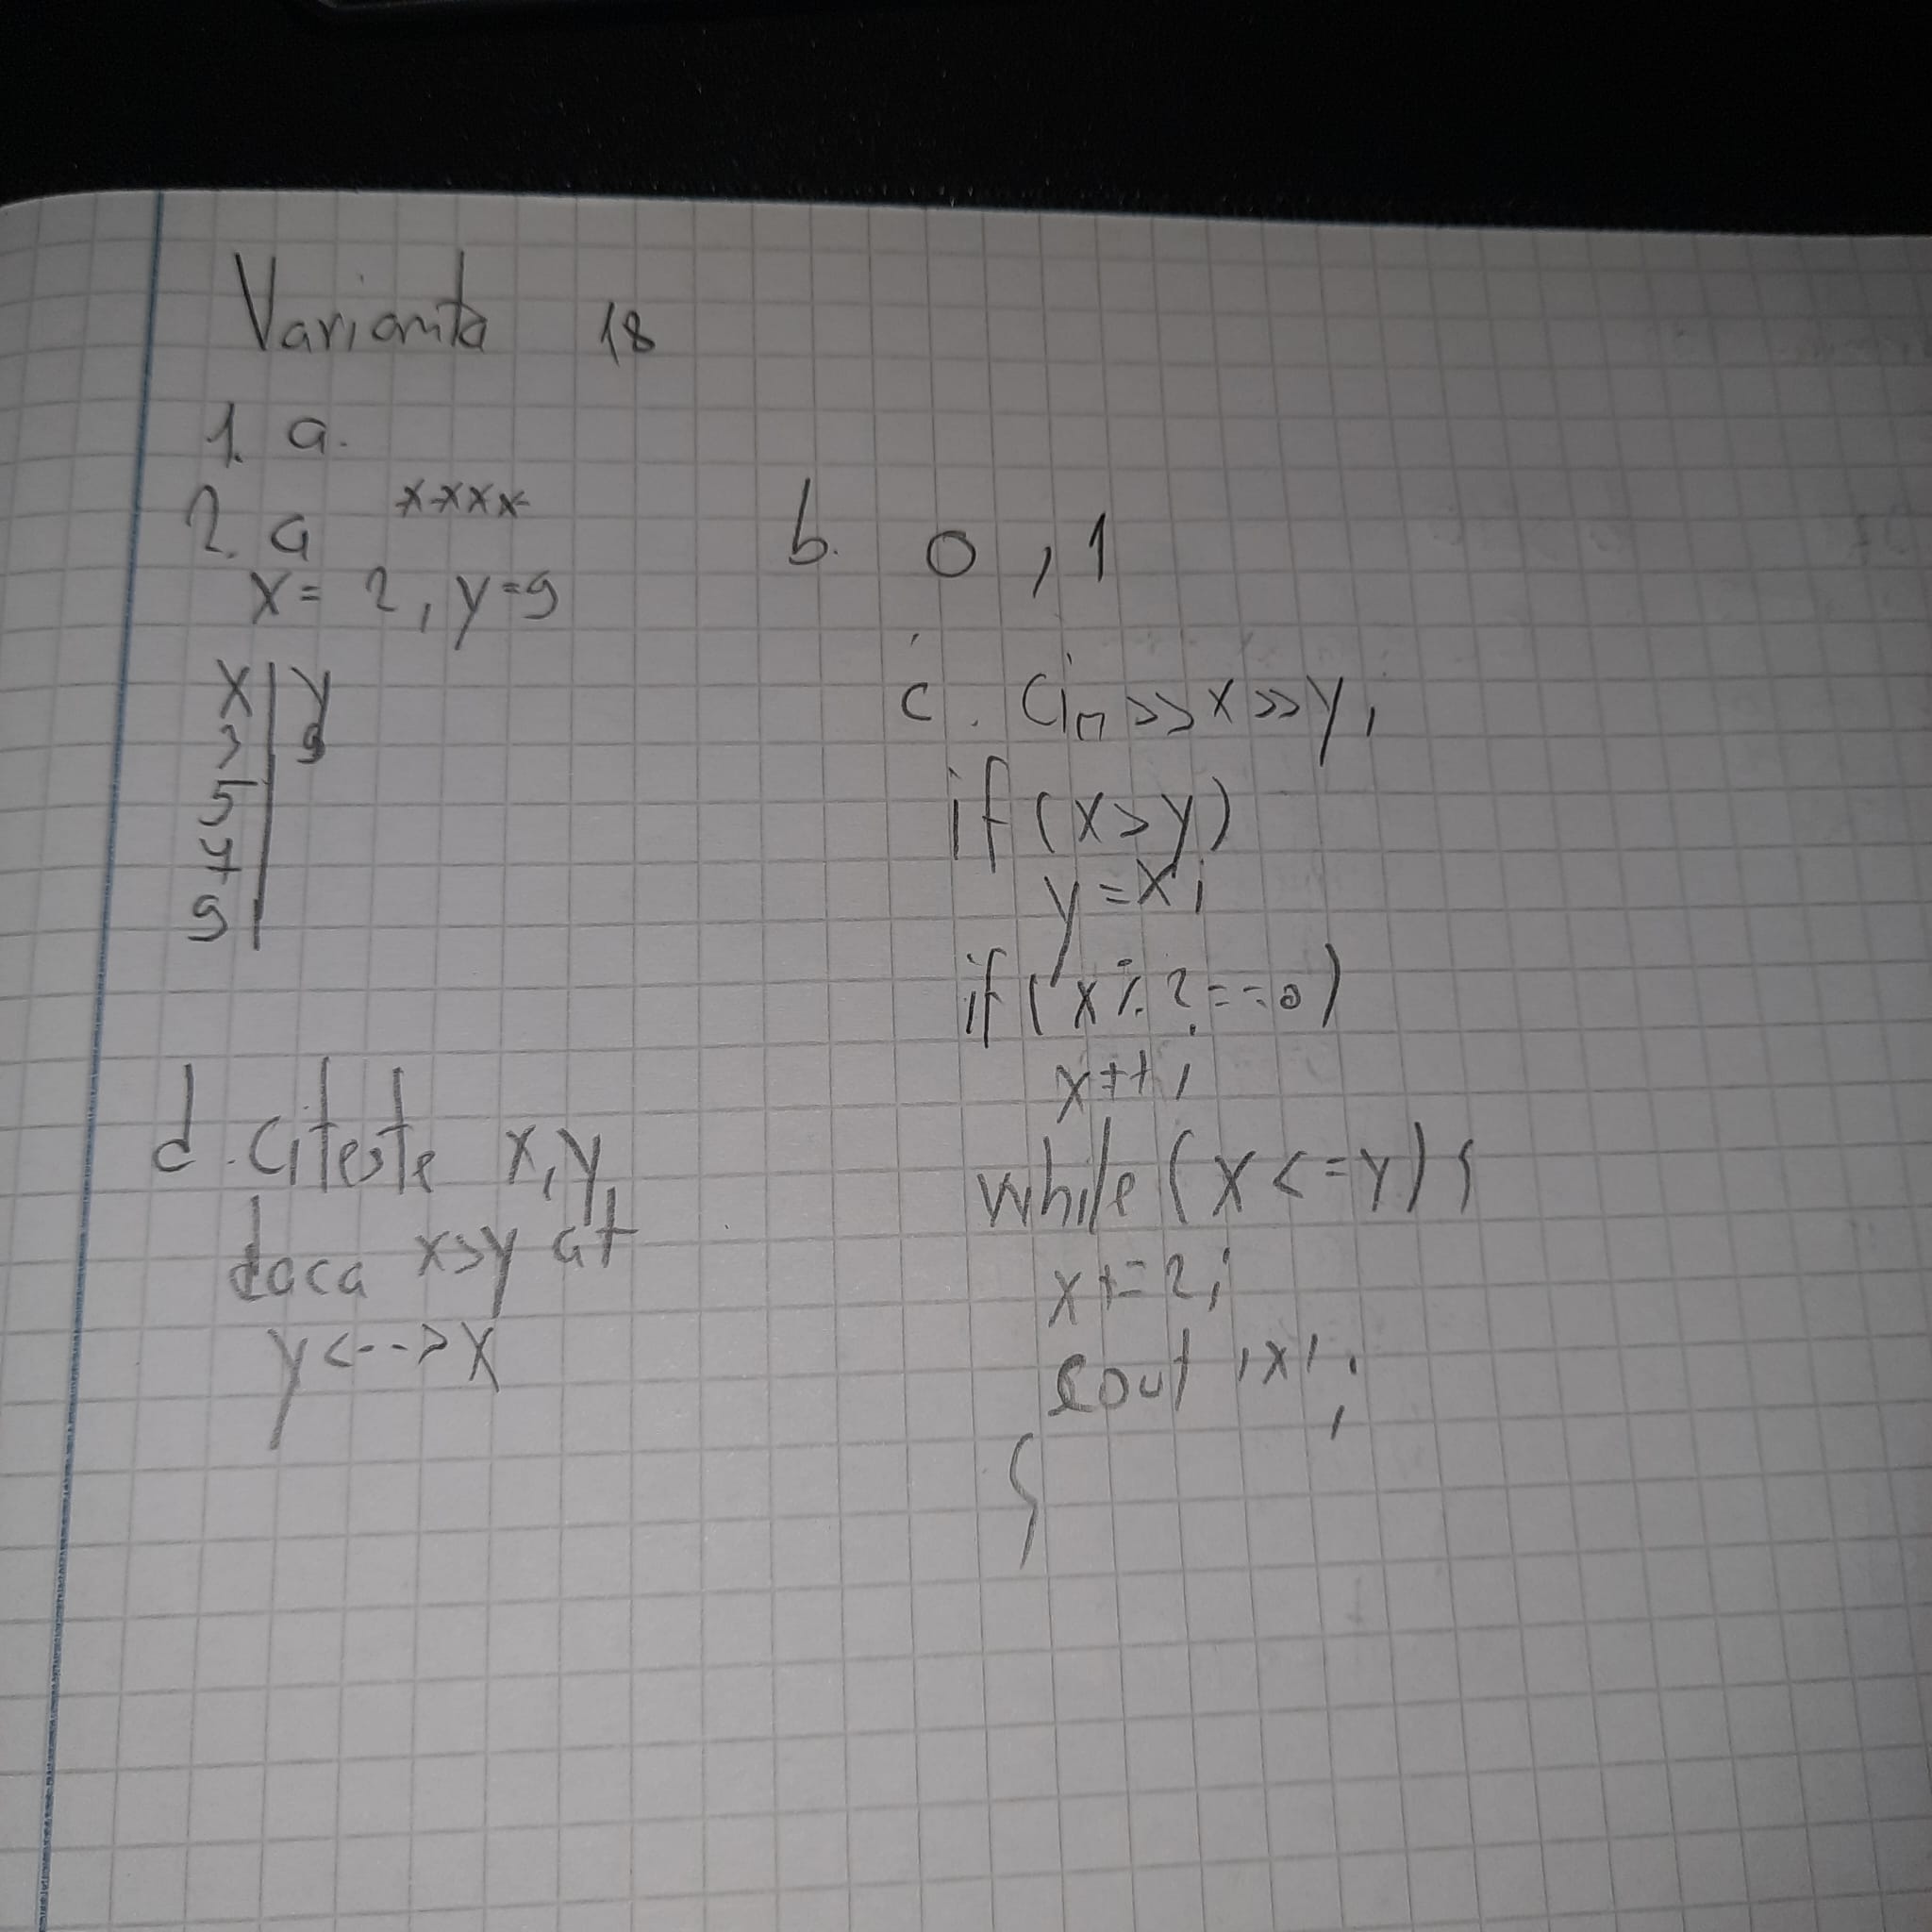 Varianta 18
1. a.
2. a ****
x = 2, y = 9
x | y
3 | 9
5
7
9
b. 0, 1
c. cin >> x >> y;
if (x > y)
y = x;
if (x % 2 == 0)
x++;
while (x <= y) {
x += 2;
cout 'x';
}
d. citeste x, y
daca x>y at
y <--> x